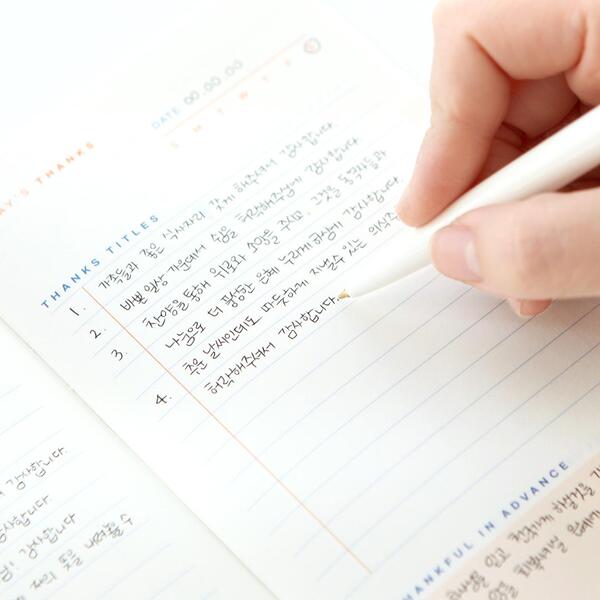 DATE 00.00.00
S M T W T F S
AY'S THANKS
THANKS TITLES
1. 가족들과 좋은 식사자리 갖게 해주셔서 감사합니다
2. 바쁜 일상 가운데서 쉼을 허락해주심에 감사합니다
3. 찬양을 통해 위로와 소망을 주시고, 그것을 동역자들과
나눔으로 더 풍성한 은혜 누리게하심에 감사합니다.
4. 추운 날씨인데도 따뜻하게 지낼수 있는 의식주
허락해주셔서 감사합니다.
감사합니다.
감사합니다.
감사합니다
내려놓을 수
HANKFUL IN ADVANCE